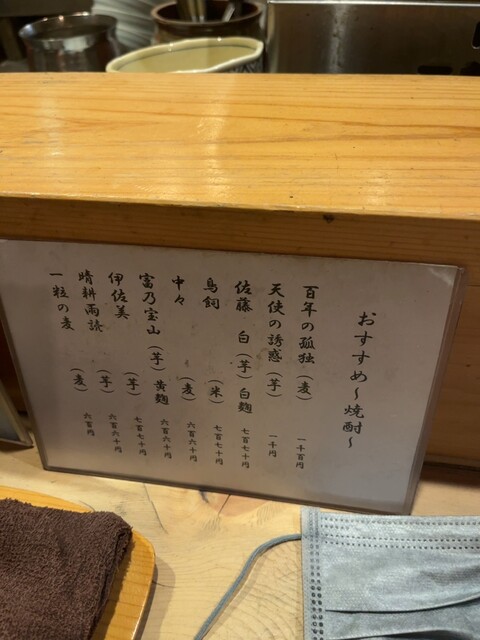 おすすめ〜焼酎〜
百年の孤独（麦） 一千百円
天使の誘惑（芋） 一千円
佐藤 白（芋）白麹 七百七十円
鳥飼 （米） 七百七十円
中々 （麦） 六百六十円
富乃宝山（芋）黄麹 六百六十円
伊佐美 （芋） 七百七十円
晴耕雨読 （芋） 六百六十円
一粒の麦 （麦） 六百円